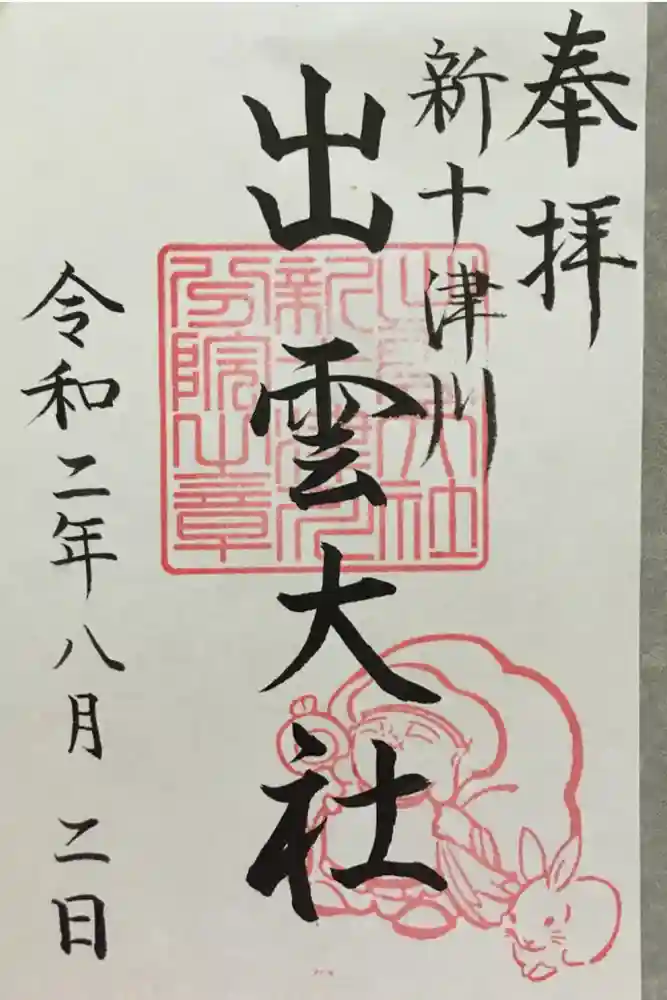 奉拝
新十津川
出雲大社
出雲大社
新十津川
分院之章
令和二年八月二日